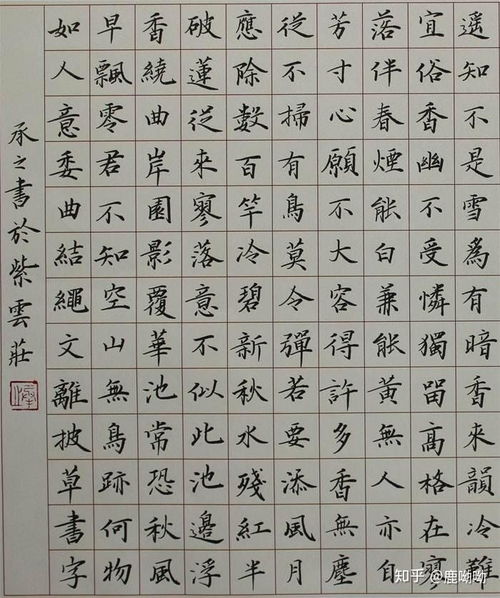 遥知不是雪為有暗香來韻冷難
宜俗香幽不受憐獨留高格在寥
落伴春煙能白兼能黃無人亦自
芳寸心願不大容得許多香無塵
從不掃有鳥莫令彈若要添風月
應除數百竿冷碧新秋水殘紅半
破蓮從來寥落意不似此池邊浮
香繞曲岸園影覆華池常恐秋風
早飄零君不知空山無鳥跡何物
如人意委曲結繩文離披草書字
承之書於紫雲莊
知乎 @鹿呦呦